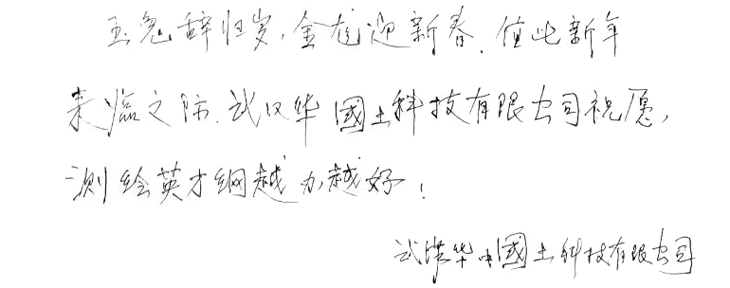 玉兔辞旧岁,金龙迎新春。值此新年
来临之际,武汉华國土科技有限公司祝愿,
测绘英才网越办越好!
武汉华中國土科技有限公司